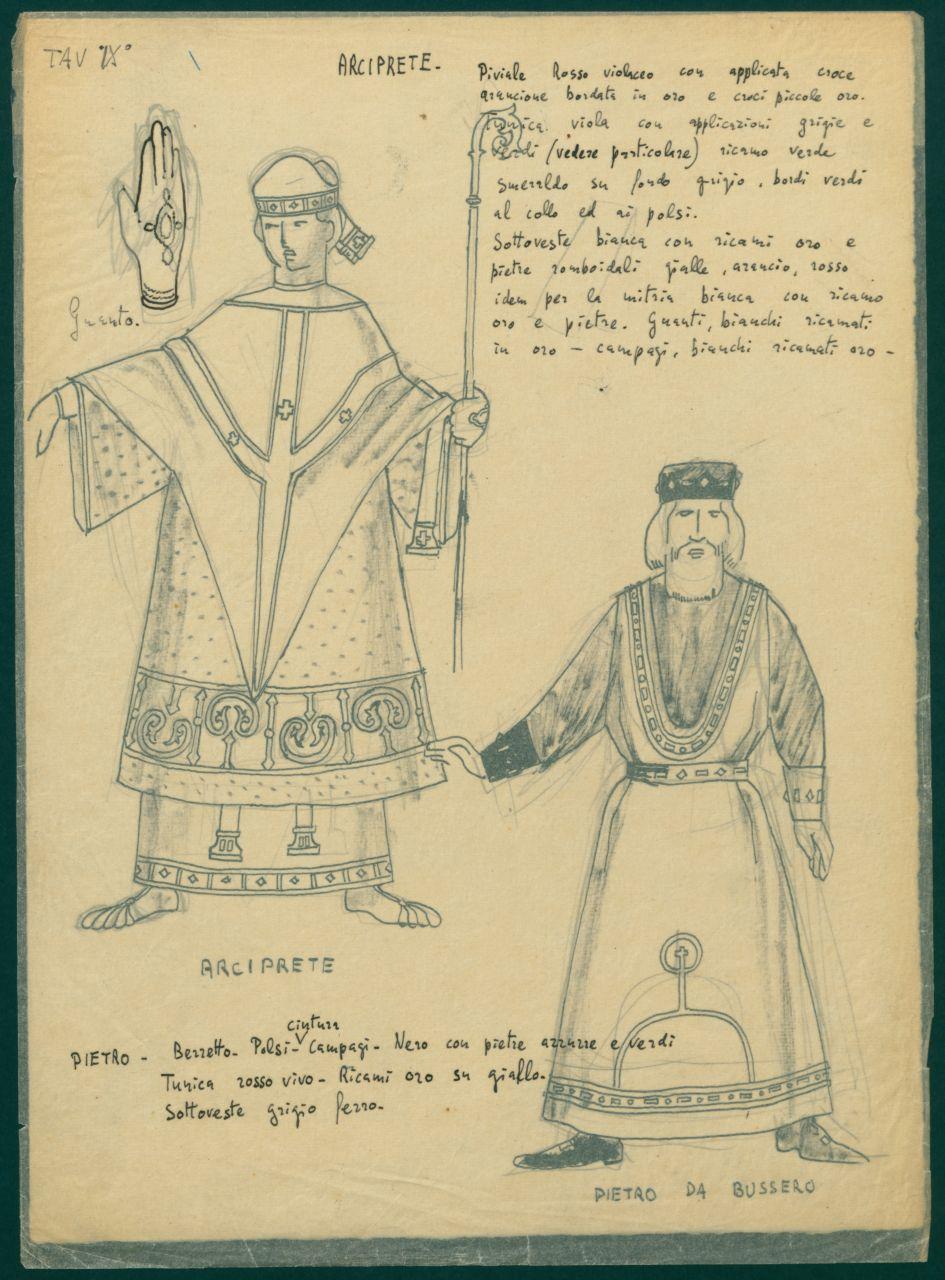 TAV IX°
ARCIPRETE-
Piviale Rosso violaceo con applicata croce
arancione bordata in oro e croci piccole oro.
Tunica viola con applicazioni grigie e
verdi (vedere particolare) ricamo verde
smeraldo su fondo grigio, bordi verdi
al collo ed ai polsi.
Sottoveste bianca con ricami oro e
pietre romboidali gialle, arancio, rosso
idem per la mitria bianca con ricamo
oro e pietre. Guanti, bianchi ricamati
in oro - campagi, bianchi ricamati oro -
Guanto.
ARCIPRETE
cintura
PIETRO - Berretto- Polsi- Campagi- Nero con pietre azzurre e verdi
Tunica rosso vivo- Ricami oro su giallo.
Sottoveste grigio ferro-
PIETRO DA BUSSERO